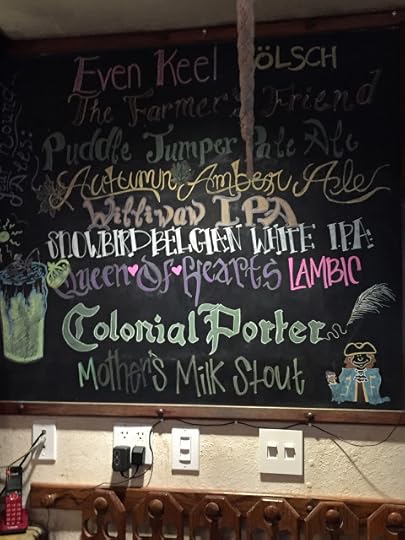 Even Keel KÖLSCH
The Farmer's Friend
Puddle Jumper Pale Ale
Autumn Amber Ale
Williwaw IPA
SNOWBIRD BELGIAN WHITE I.P.A.
Queen of Hearts LAMBIC
Colonial Porter
Mother's Milk Stout